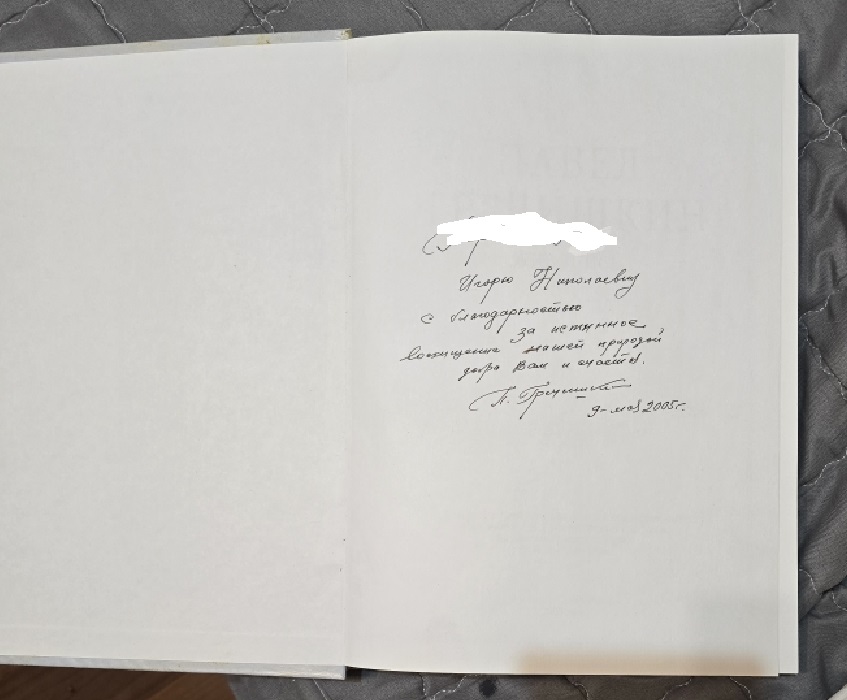 Игорю Николаевичу
с благодарностью
за истинное
восхищение нашей природой
добра Вам и счастья.
9 мая 2005 г.